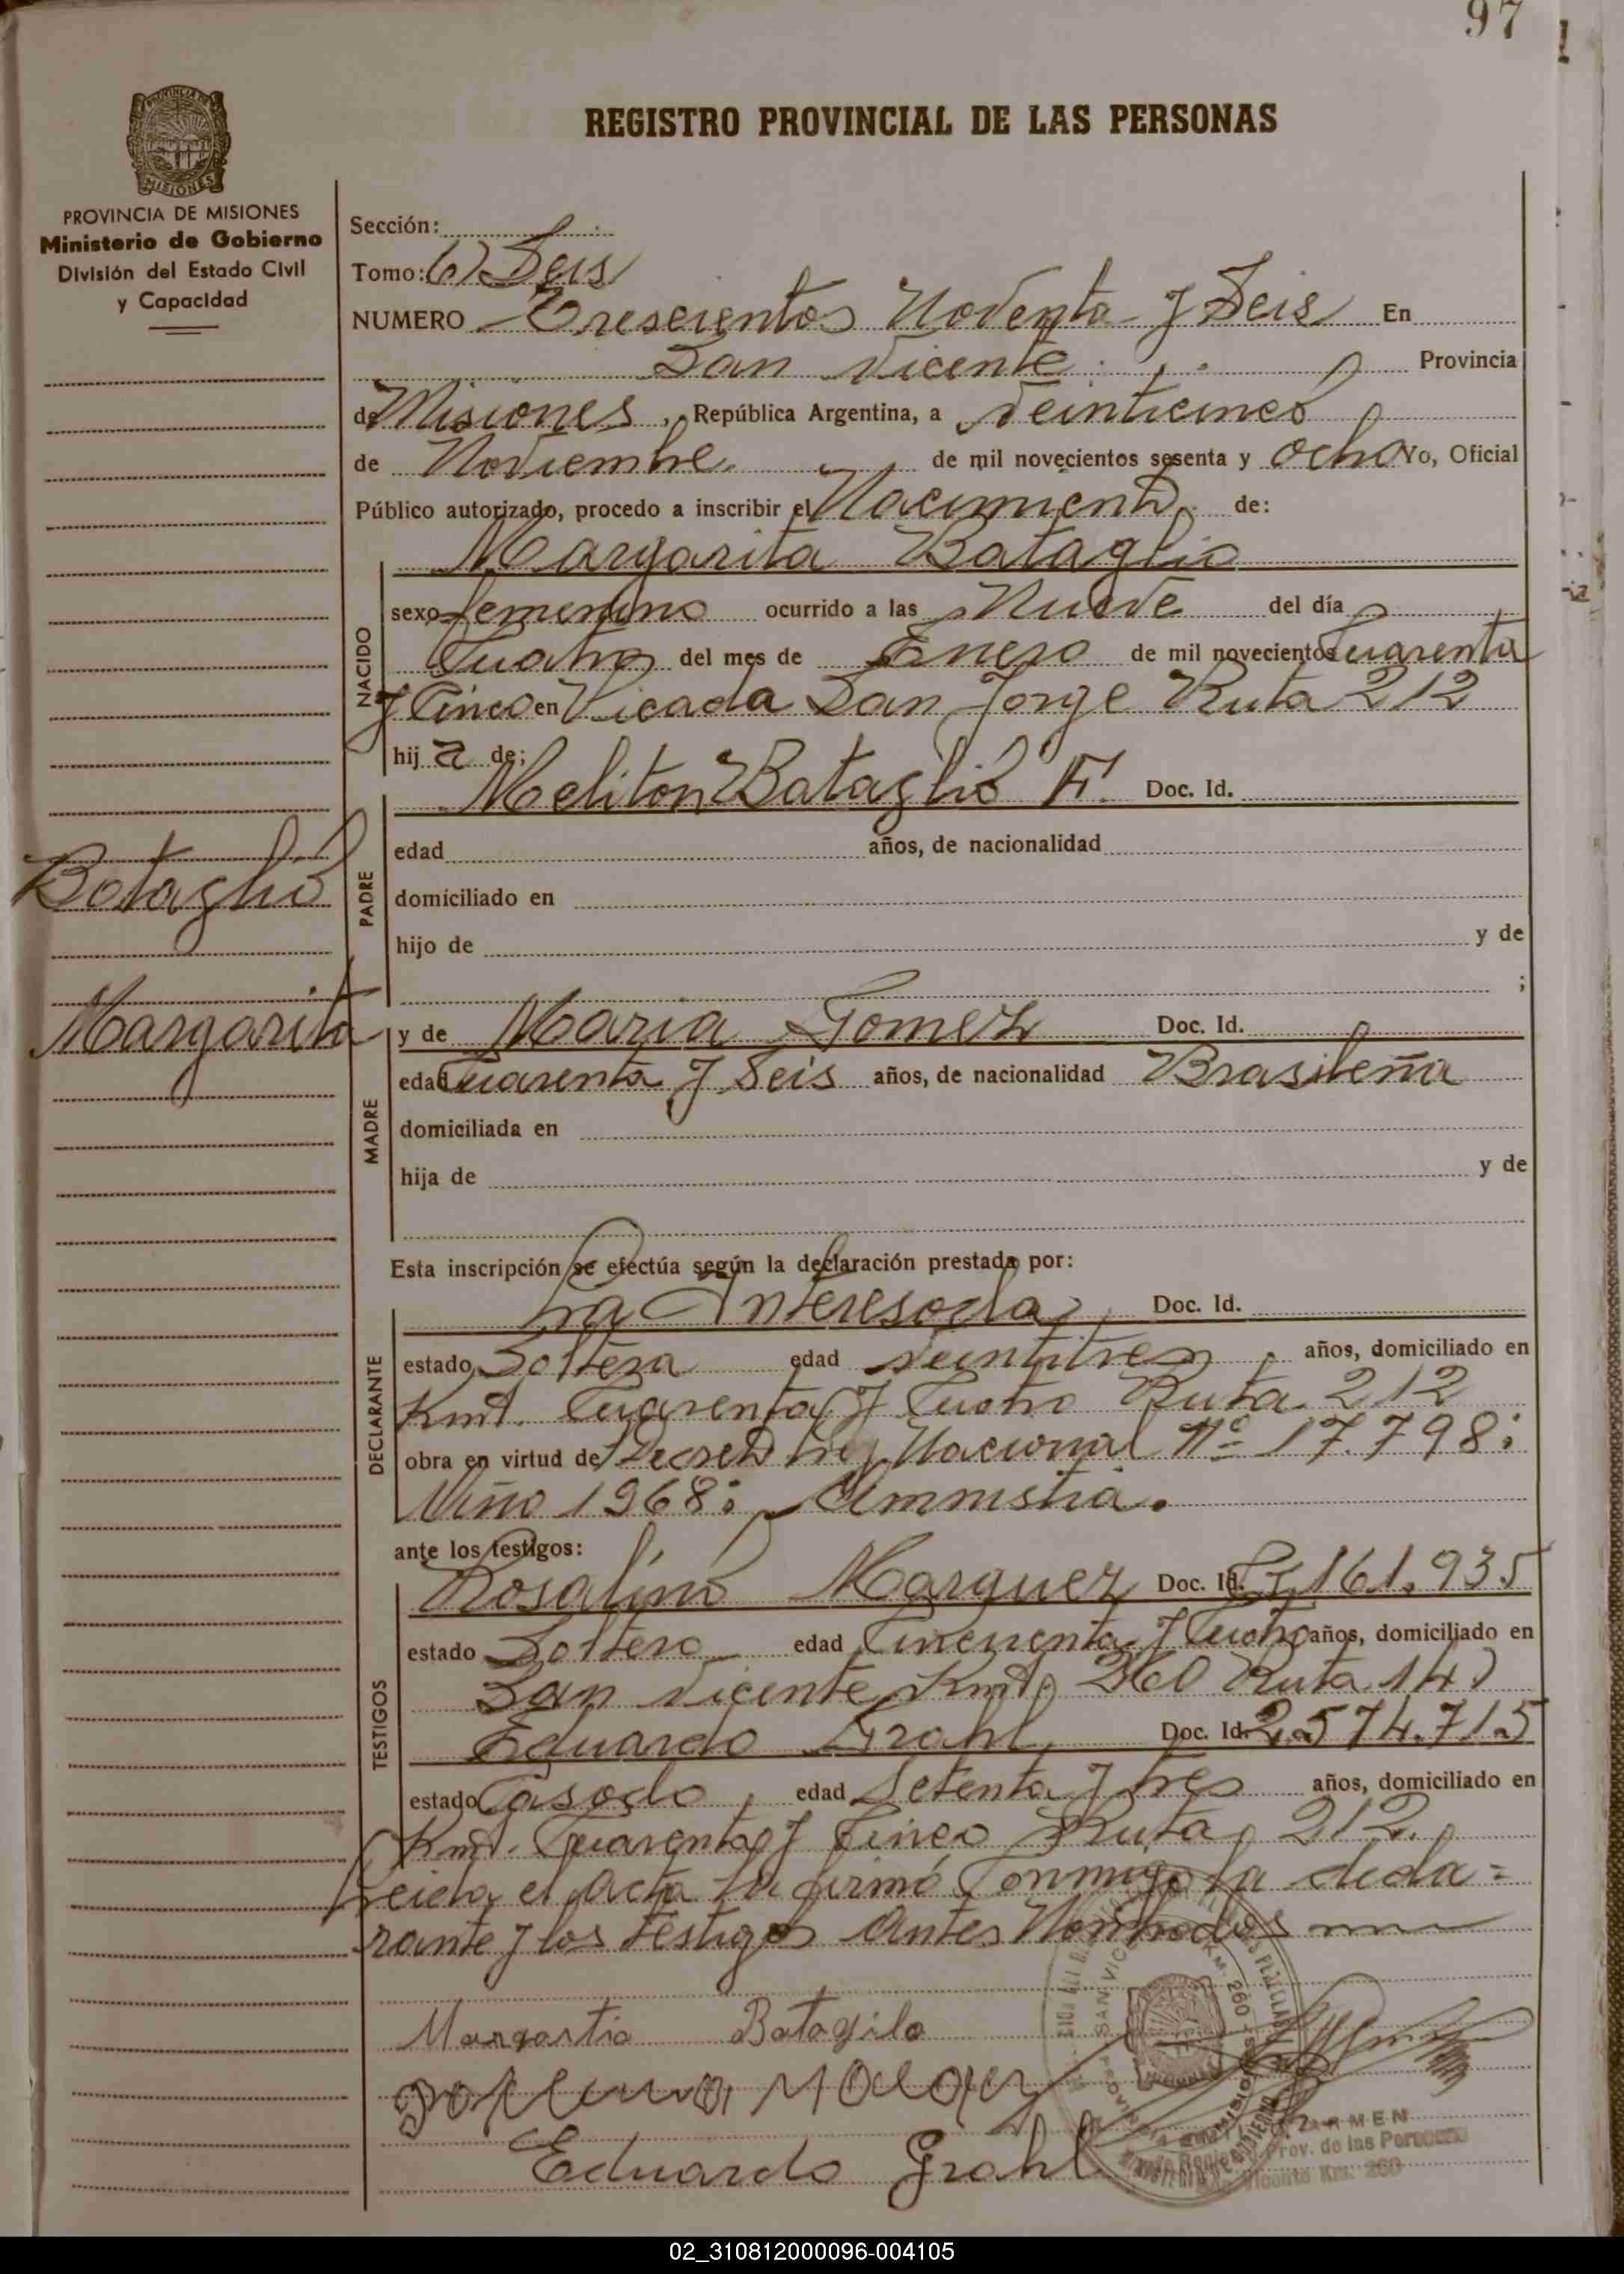 97
REGISTRO PROVINCIAL DE LAS PERSONAS
PROVINCIA DE MISIONES
Ministerio de Gobierno
División del Estado Civil
y Capacidad
Sección:
Tomo: (6) Seis
NUMERO Trescientos Noventa y Seis En
San Vicente Provincia
de Misiones, República Argentina, a Veinticinco
de Noviembre de mil novecientos sesenta y ocho Yo, Oficial
Público autorizado, procedo a inscribir el Nacimiento de:
Margarita Bataglio
NACIDO
sexo femenino ocurrido a las Nueve del día
Cuatro del mes de Enero de mil novecientos Cuarenta
y Cinco en Picada San Jorge Ruta 212
hija de;
Meliton Bataglio F. Doc. Id.
PADRE
edad años, de nacionalidad
domiciliado en
hijo de y de
;
Bataglio
Margarita
y de Maria Gomez Doc. Id.
MADRE
edad Cuarenta y Seis años, de nacionalidad Brasileña
domiciliada en
hija de y de
Esta inscripción se efectúa según la declaración prestada por:
La Interesada Doc. Id.
DECLARANTE
estado Soltera edad Veintitres años, domiciliado en
Kmt. Cuarenta y Cuatro Ruta 212
obra en virtud de Decreto Ley Nacional Nº 17.798:
Año 1968: Amnistia.
ante los testigos:
Rosalino Marquez Doc. Id. 161.935
TESTIGOS
estado Soltero edad Cincuenta y Cuatro años, domiciliado en
San Vicente Kmt. 260 Ruta 14)
Eduardo Grahl Doc. Id. 2.574.715
estado Casado edad Setenta y tres años, domiciliado en
Kmt. Cuarenta y Cinco Ruta 212.
Leida el acta la firmó Conmigo la decla=
rante y los testigos antes Nombrados
Margartia Batagila
Eduardo Grahl
SAN VICENTE KM. 260
Registro Prov. de las Personas
San Vicente Km. 260
02_310812000096-004105